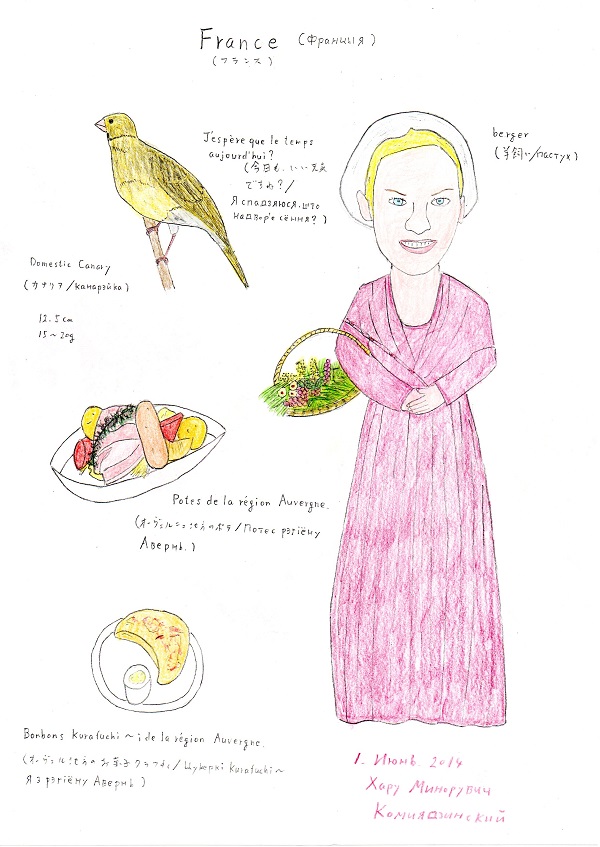 France (Франция)
(フランス)
J'espère que le temps
aujourd'hui?
(今日も、いい天気
ですね?/
Я спадзяюся, што
надвор'е сёння?)
berger
(羊飼い/пастух)
Domestic Canary
(カナリア/канарэйка)
12.5cm
15~20g
Potes de la région Auvergne.
(オーヴェルニュ地方のポテ/Потес рэгіёну
Авернь.)
Bonbons Kurafuchi~i de la région Auvergne.
(オーヴェルニュ地方のお菓子クラフティ/Цукеркі Kurafuchi~
я з рэгіёну Авернь)
1. Июнь. 2014
Хару Минорувич
Комиядзинский